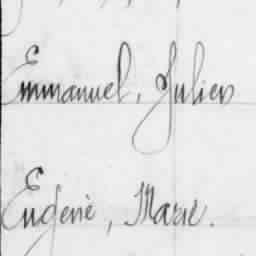 Emmanuel, Julien
Eugène, Marie.